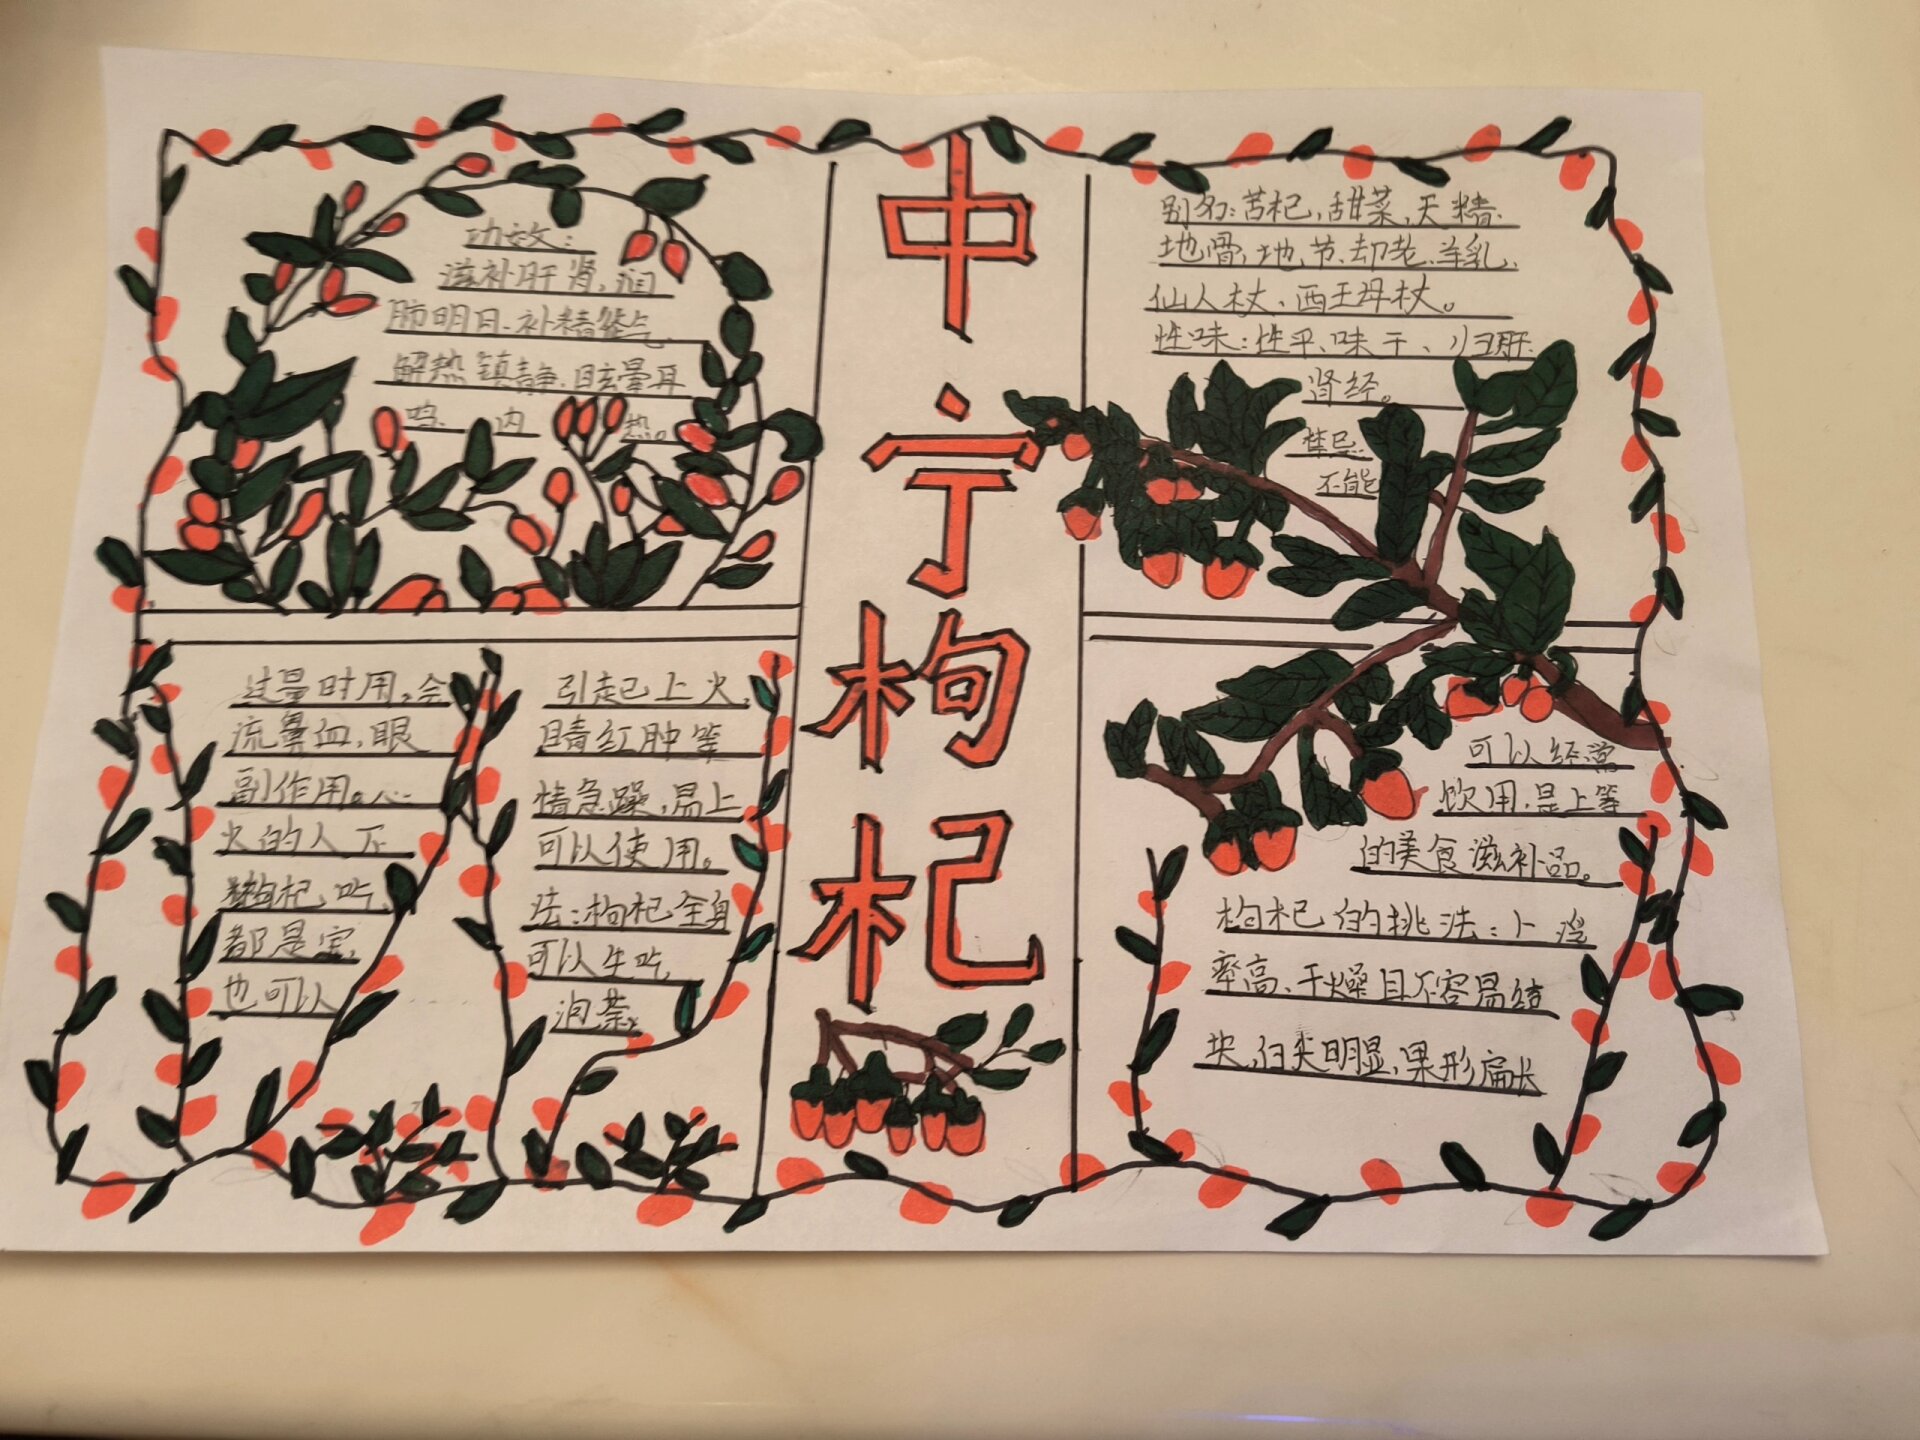 功效：
滋补肝肾，润
肺明目、补精益气
解热镇静、眩晕耳
鸣、内热。
中宁枸杞
别名：苦杞，甜菜，天精、
地骨、地节、却老、羊乳、
仙人杖、西王母杖。
性味：性平、味干、归肝
肾经。
禁忌：
不能
过量时用。会引起已上火，
流鼻血，眼睛红肿等
副作用。心情急躁，易上
火的人不可以使用。
枸杞吃法：枸杞全身
都是宝，可以生吃，
也可以泡茶。
可以经常
饮用，是上等
的美食滋补品。
枸杞的挑法：
率高、干燥且不容易结
块，白尖明显，果形扁长